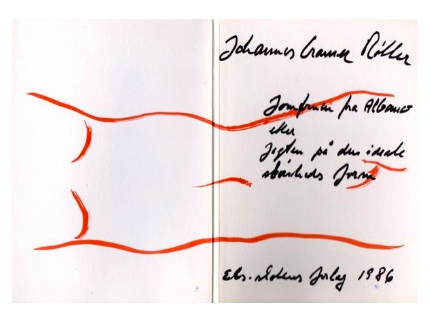 Johannes Cramer Møller
Jomfruen fra Albanot
eller
Jagten på den ideale
skønheds form
Eks-skolens Forlag 1986